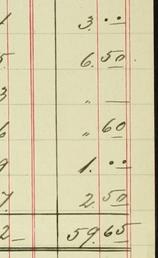 1 3. ..
5 6. 50
3 " —
6 " 60
9 1. ..
7 2. 50
2 – 59. 65